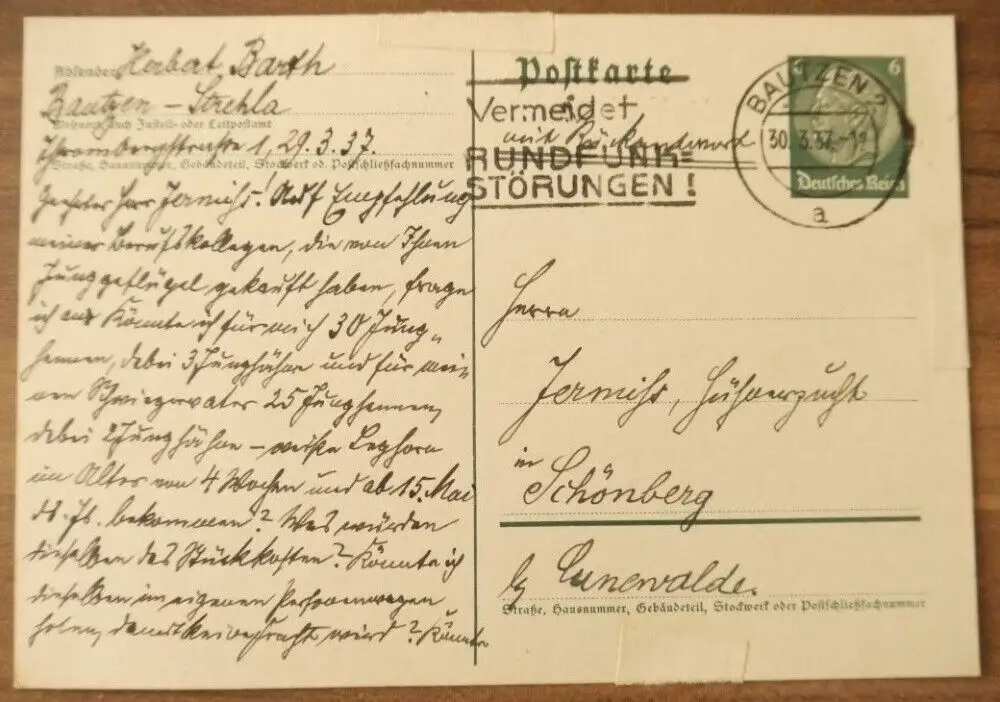 Absender: Herbert Barth
Bautzen - Strehla
Wohnort, auch Zustell- oder Leitpostamt
Thrombergstraße 1, 29.3.37.
Straße, Hausnummer, Gebäudeteil, Stockwerk od. Postschließfachnummer
Geehrter Herr Jermihs! Auf Empfehlung
meiner Berufskollegen, die von Ihnen
Junggeflügel gekauft haben, frage
ich an: Könnte ich für mich 30 Jung-
hennen, dabei 3 Junghähne und für mei-
nen Schwiegervater 25 Junghennen,
dabei 2 Junghähne – weiße Leghorn
im Alter von 4 Wochen und ab 15. Mai
ds. Js. bekommen? Was würden
dieselben das Stück kosten? Könnte ich
dieselben im eigenen Personenwagen
holen, damit keine Fracht wird? Könnte
Postkarte
mit Rückantwort
Vermeidet
RUNDFUNK=
STÖRUNGEN!
BAUTZEN 2
30.3.37.-1
a
6
Deutsches Reich
Herrn
Jermihs, Hühnerzucht
in
Schönberg
b/ Cunewalde.
Straße, Hausnummer, Gebäudeteil, Stockwerk oder Postschließfachnummer